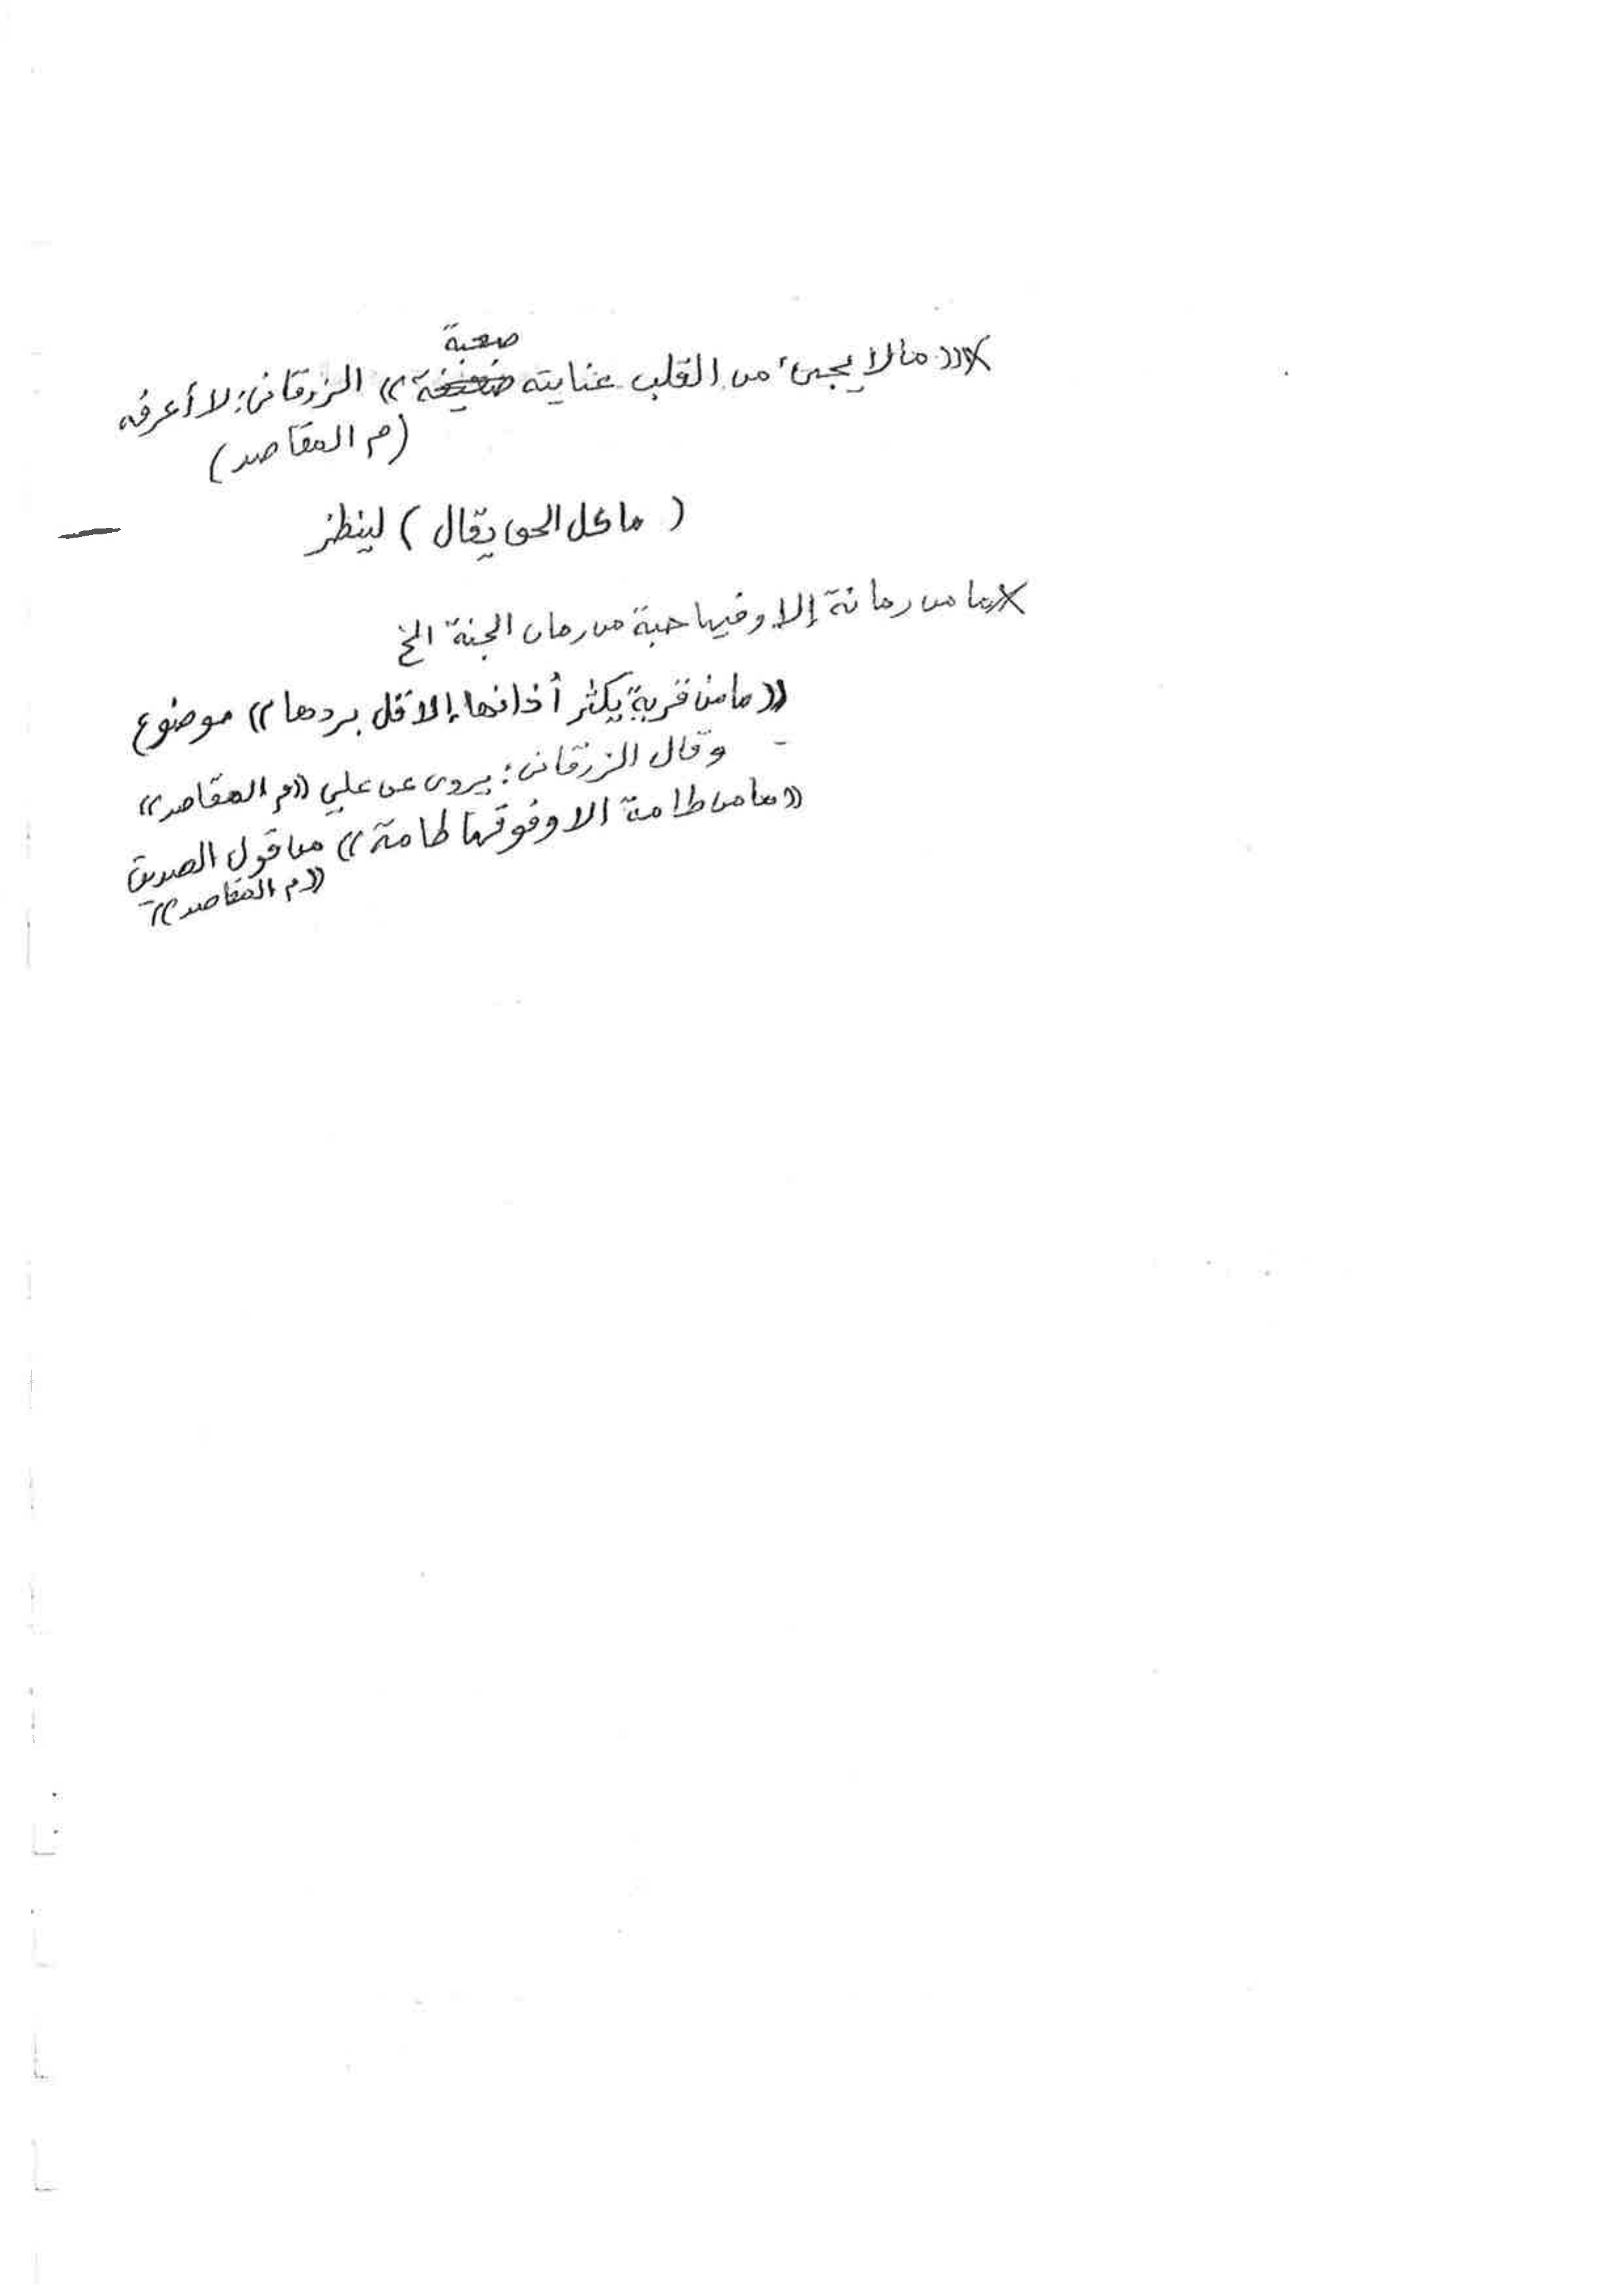 «ما لا يجيء من القلب عنايته صعبة» الزرقاني: لا أعرفه
(م المقاصد)
(ما كل الحق يقال) لينظر
ما من رمانة إلا وفيها حبة من رمان الجنة الخ
«ما من قرية يكثر أذانها إلا قل بردها» موضوع
وقال الزرقاني: يروى عن علي «م المقاصد»
«ما من طامة الا وفوقها طامة» من قول الصديق
«م المقاصد»